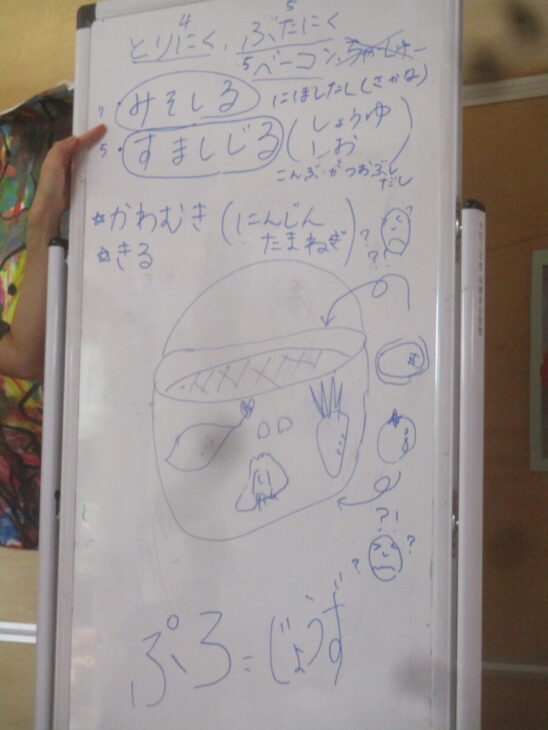 4 5
とりにく、ぶたにく
5ベーコン
? みそしる にぼしだし(さかな)
5 すましじる (しょうゆ
しお)
こんぶ・かつおぶし
だし
☆かわむき (にんじん
たまねぎ)
☆きる
? ?
??
?!
? ?
ぷろ=じょうず